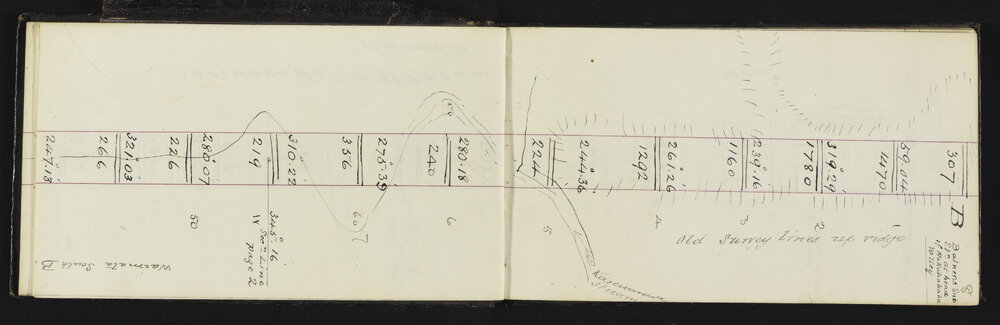 247.13
266
321.03
226
280.07
219
310.22
356
275.39
240
280.18
50
60
7
6
345.16
Page 2
Waimata South B
224
244.36
1292
261.26
1160
239.16
1780
319.29
1470
59.04
307
5
4
3
2
1
Old Survey lines up ridge
B
8
Stream
Valley